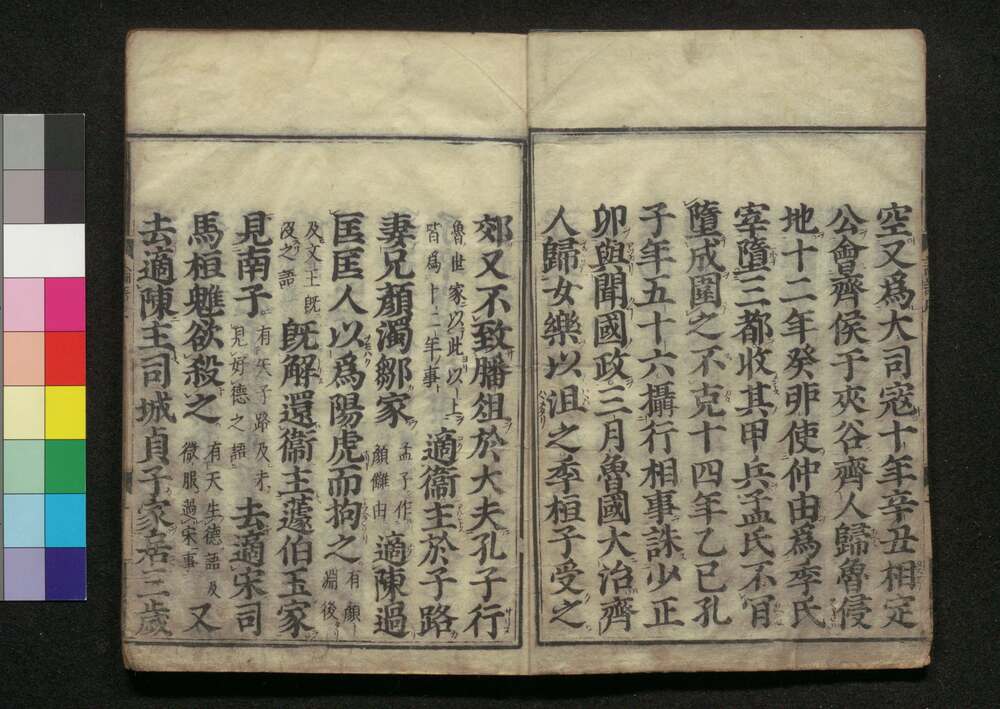 空又爲大司寇十年辛丑相定
公會齊侯于夾谷齊人歸魯侵
地十二年癸卯使仲由爲季氏
宰墮三都收其甲兵孟氏不肯
墮成圍之不克十四年乙巳孔
子年五十六攝行相事誅少正
卯與聞國政三月魯國大治齊
人歸女樂以沮之季桓子受之
郊又不致膰俎於大夫孔子行
魯世家以此以上
皆爲十二年事
適衞主於子路
妻兄顏濁鄒家
孟子作
顏讎由
適陳過
匡匡人以爲陽虎而拘之
有顏
淵後
及文王旣
沒之語
旣解還衞主蘧伯玉家
見南子
有矢子路及未
見好德之語
去適宋司
馬桓魋欲殺之
有天生德語及
微服過宋事
又
去適陳主司城貞子家居三歲